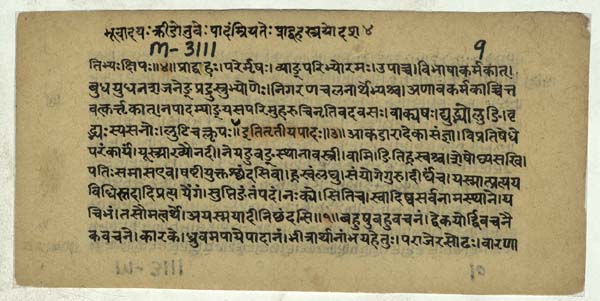 भूवादयः क्रीडोनुवेः पादम्रियतेः प्राद्वहस्त्रयोदश ४
M-3111 9
तिभ्यःक्षिपः॥४॥प्राद्वहः।परेर्मृषः।व्याङ्परिभ्योरमः।उपाच्च।विभाषाकर्मकात्।
बुधयुधनशजनेङ्प्रुद्रुस्रुभ्योणेः।निगरणचलनार्थेभ्यश्च।अणावकर्मकाच्चित्त
वत्कर्तृकात्।नपादम्याङ्यसपरिमुहरुचिनृतिवदवसः।वाक्यषः।द्युद्भ्योलुङि।वृ
द्भ्यःस्यसनोः।लुटिचक्लृपः॥इतितृतीयपादः॥३॥आकडारादेकासंज्ञा।विप्रतिषेधे
परंकार्यं।यूस्त्र्याख्यौनदी।नेयङुवङ्स्थानावस्त्री।वामि।ङितिह्रस्वश्च।शेषोघ्यसखि
पतिःसमासएव।षष्ठीयुक्तश्छंदसिवा।ह्रस्वंलघु।संयोगेगुरु।दीर्घंच।यस्मात्प्रत्यय
विधिस्तदादिप्रत्ययेंगं।सुप्तिङंतंपदं।नःक्ये।सितिच।स्वादिष्वसर्वनामस्थाने।य
चिभं।तसौमत्वर्थे।अयस्मयादीनिछंदसि॥१॥बहुषुबहुवचनं।द्व्येकयोर्द्विवचनै
कवचने।कारके।ध्रुवमपायेपादानं।भीत्रार्थानांभयहेतुः।पराजेरसोढः।वारणा